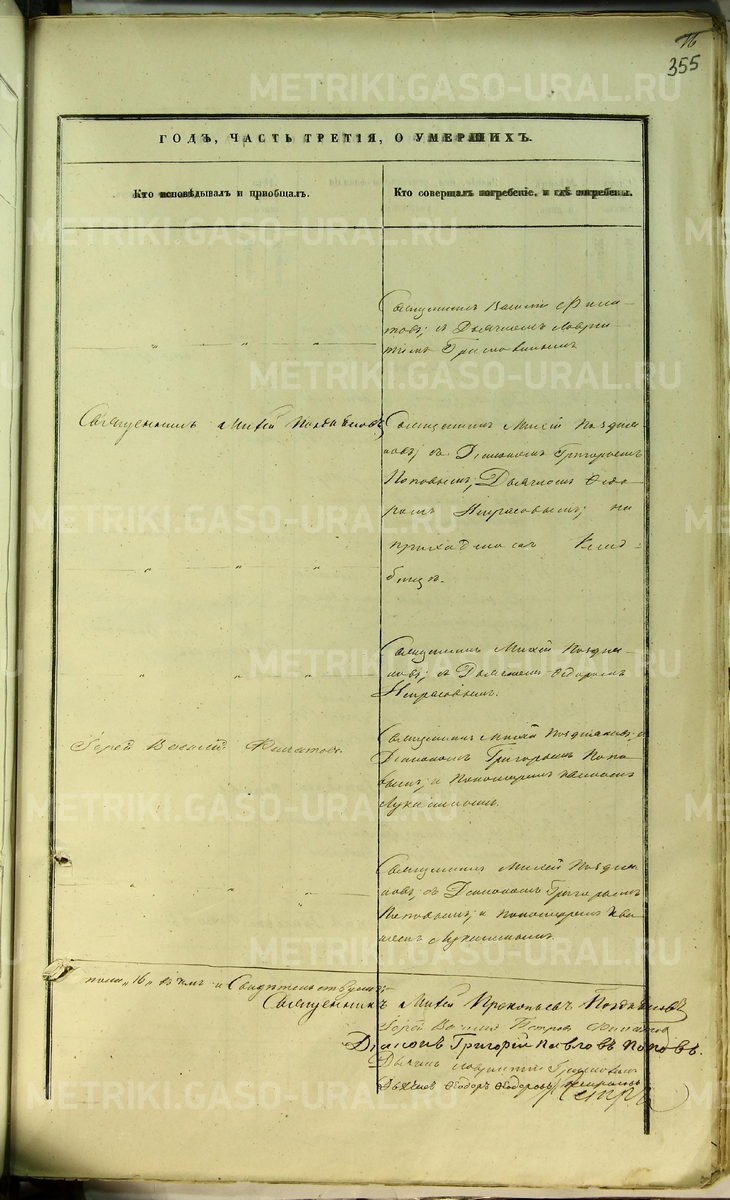 16
355
ГОДЪ, ЧАСТЬ ТРЕТІЯ, О УМЕРШИХЪ.
Кто исповѣдывалъ и пріобщалъ.
Кто совершалъ погребеніе, и гдѣ погребены.
Священникъ Василій Фила-
товъ; съ Дьячкомъ Лаврен-
тіемъ
Священникъ Михей Поздняковъ
Священникъ Михей Поздня-
ковъ; съ Діакономъ Григорьемъ
Поповымъ; Дьячкомъ Ѳедо-
ромъ Некрасовымъ; на
приходскомъ Клад-
бищѣ.
Священникъ Михей Поздня-
ковъ; съ Дьячкомъ Ѳедоромъ
Некрасовымъ.
Іерей Василій Филатовъ.
Священникъ Михей Поздняковъ; съ
Діакономъ Григорьемъ Попо-
вымъ; и Пономаремъ
Священникъ Михей Поздня-
ковъ; съ Діакономъ Григорьемъ
Поповымъ; и Пономаремъ
„16„ Свидетельствуемъ
Священникъ Михей Прокопьевъ Поздняковъ
Іерей Василій Петровъ Филатовъ
Діаконъ Григорій Павловъ Поповъ.
Дьячекъ Лаврентій
Дьячекъ Ѳеодоръ Ѳедоровъ Некрасовъ
METRIKI.GASO-URAL.RU